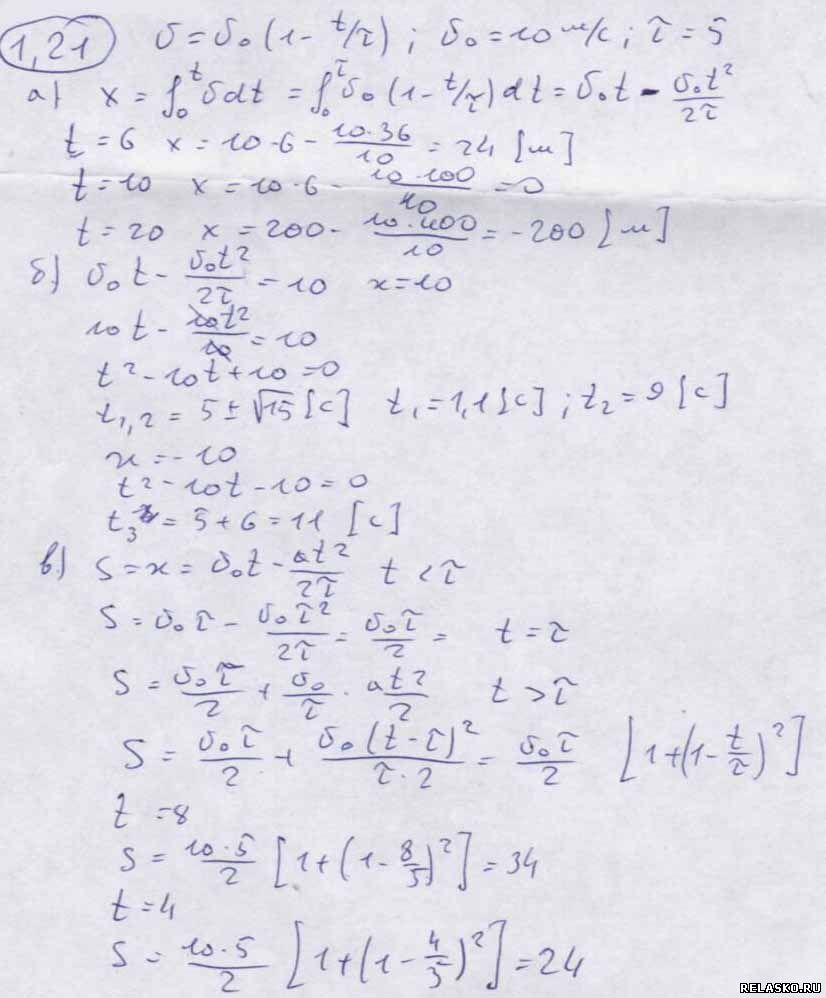 1,21 υ = υ₀ (1 - t/τ) ; υ₀ = 10 м/с ; τ = 5
а) x = ∫₀ᵗ υdt = ∫₀ᵗ υ₀ (1 - t/τ) dt = υ₀t - υ₀t²/2τ
t = 6 x = 10·6 - 10·36/10 = 24 [м]
t = 10 x = 10·6 - 10·100/10 = 0
t = 20 x = 200 - 10·400/10 = -200 [м]
б) υ₀t - υ₀t²/2τ = 10 x = 10
10t - 10t²/10 = 10
t² - 10t + 10 = 0
t₁,₂ = 5 ± √15 [с] t₁ = 1,1 [с] ; t₂ = 9 [с]
x = -10
t² - 10t - 10 = 0
t₃ = 5 + 6 = 11 [с]
в) S = x = υ₀t - at²/2τ t < τ
S = υ₀τ - υ₀τ²/2τ = υ₀τ/2 = t = τ
S = υ₀τ/2 + υ₀/τ · at²/2 t > τ
S = υ₀τ/2 + υ₀(t - τ)²/τ·2 = υ₀τ/2 [1 + (1 - t/τ)²]
t = 8
S = 10·5/2 [1 + (1 - 8/5)²] = 34
t = 4
S = 10·5/2 [1 + (1 - 4/5)²] = 24
RELASKO.RU